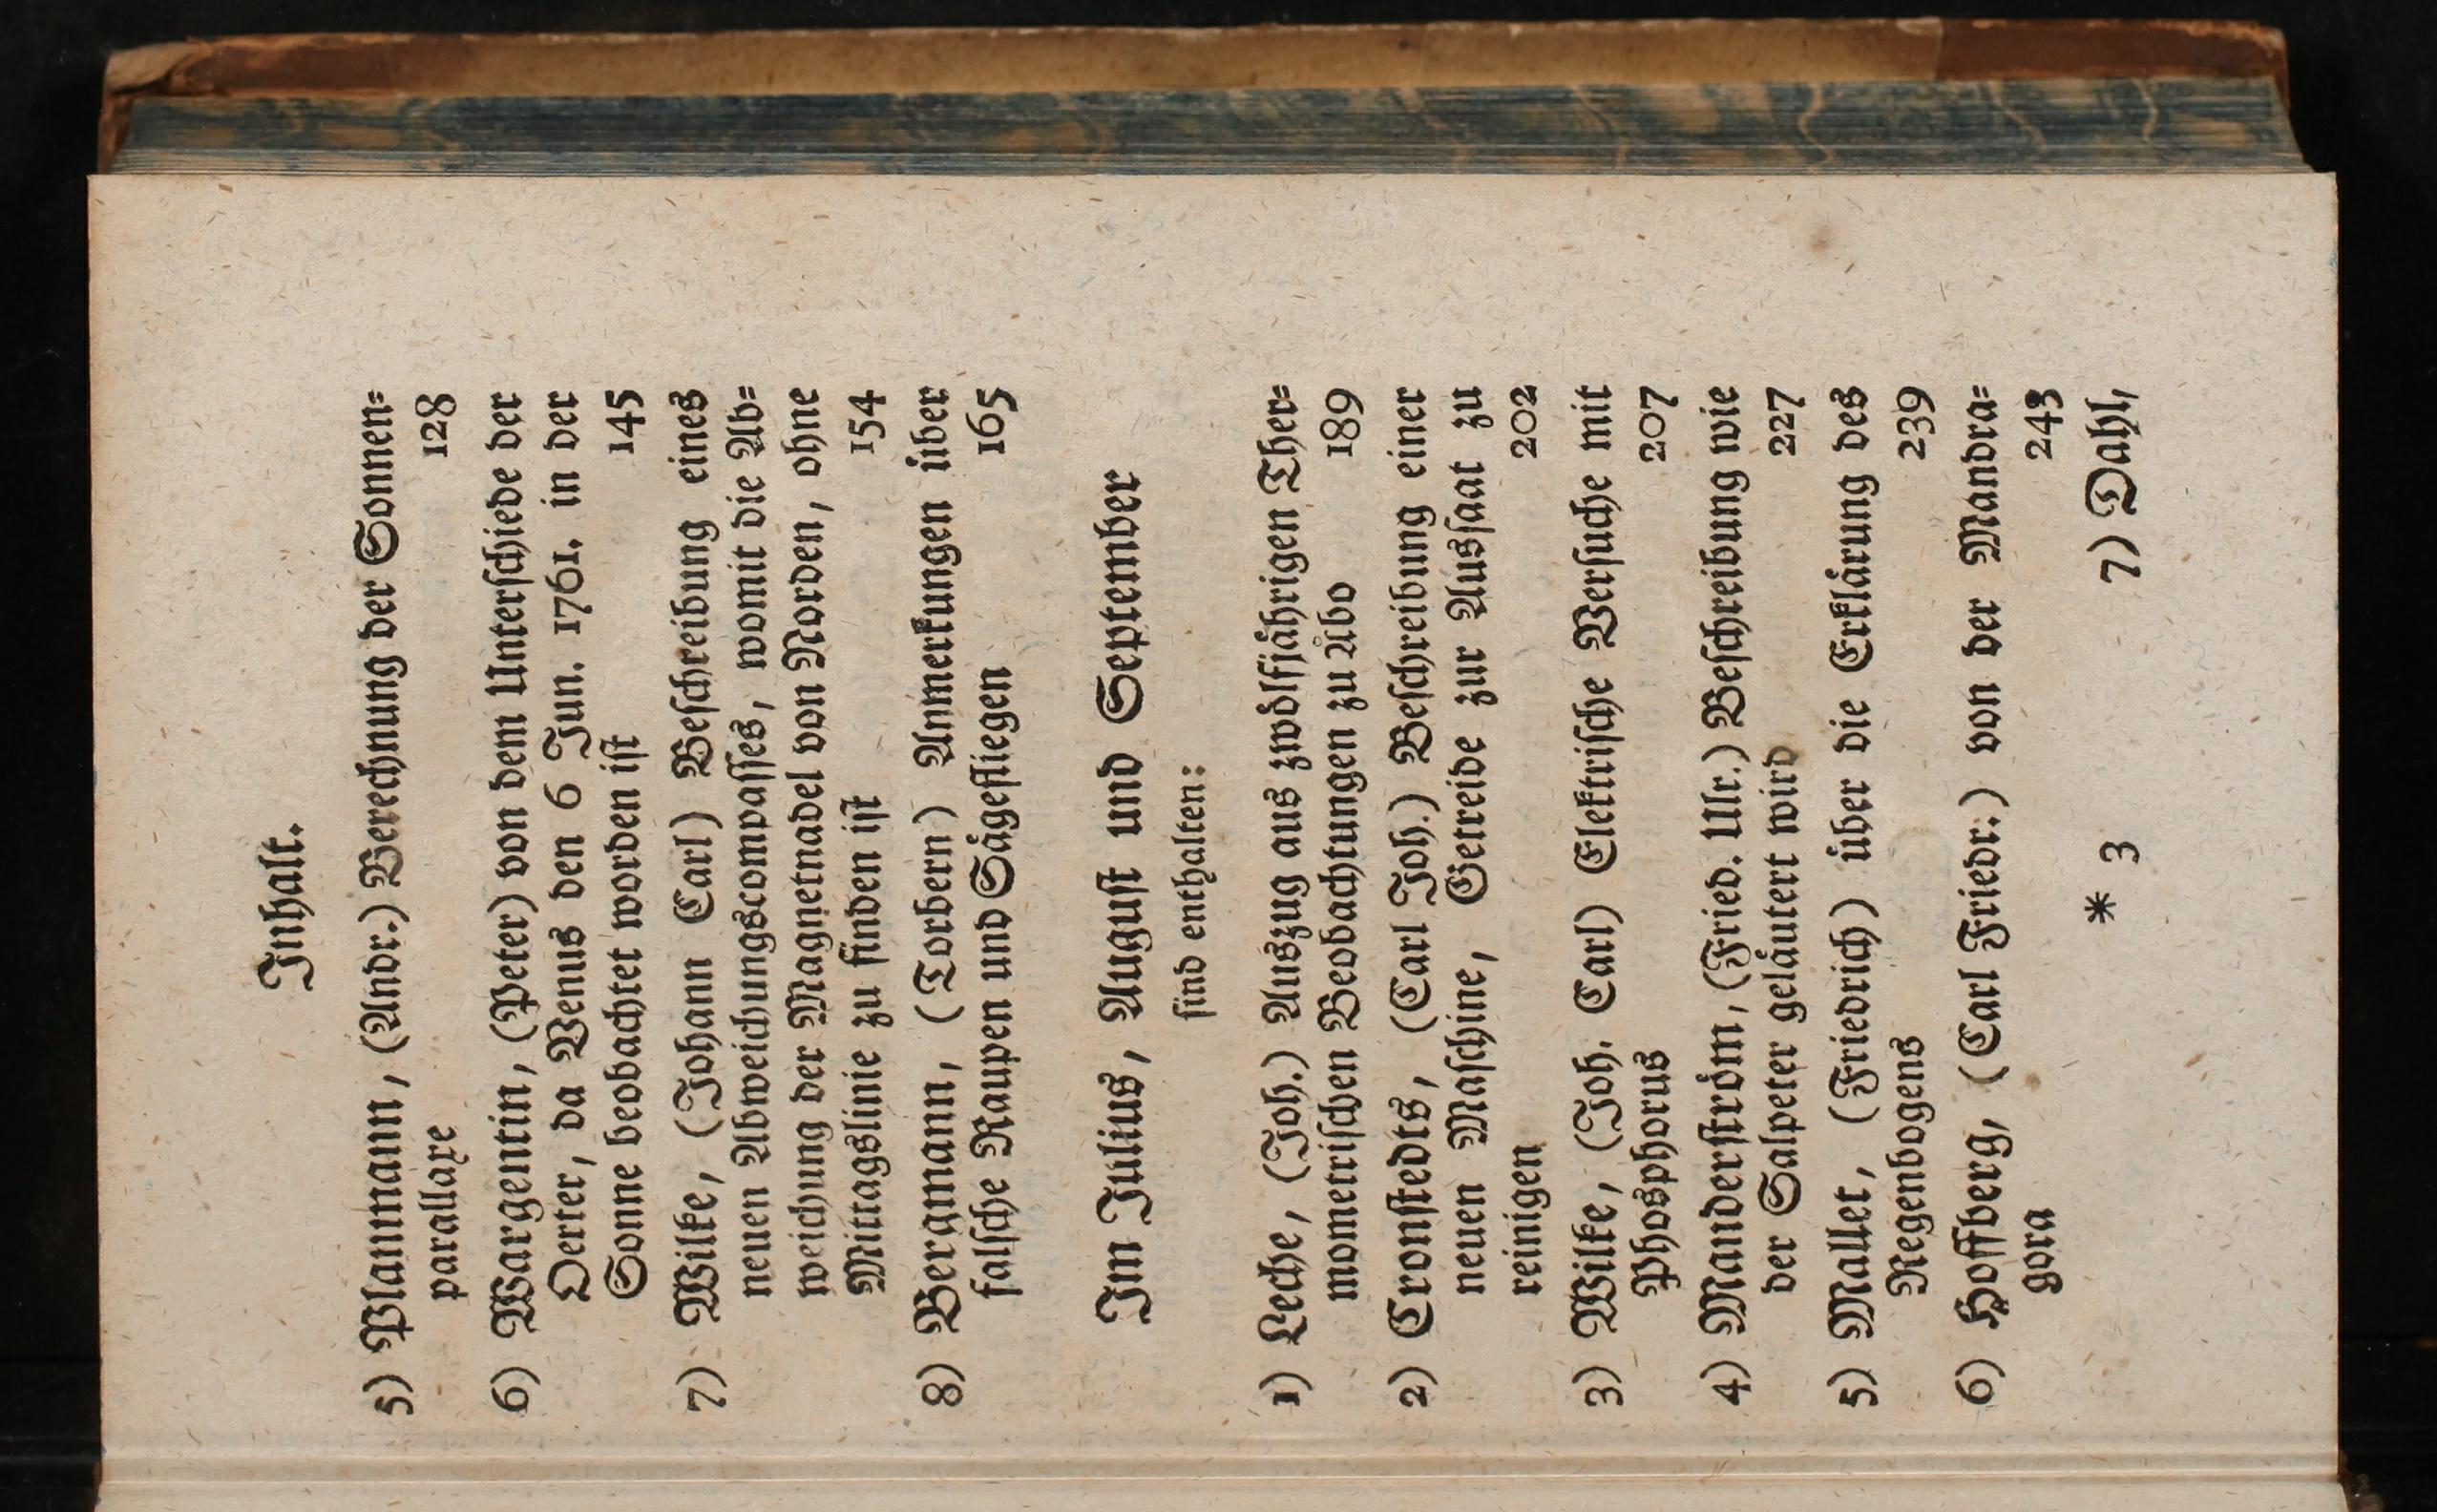 Inhalt.
5) Planmann, (Andr.) Berechnung der Sonnen=
parallaxe 128
6) Wargentin, (Peter) von dem Unterschiede der
Oerter, da Venus den 6 Jun. 1761. in der
Sonne beobachtet worden ist 145
7) Wilke, (Johann Carl) Beschreibung eines
neuen Abweichungscompasses, womit die Ab=
weichung der Magnetnadel von Norden, ohne
Mittagslinie zu finden ist 154
8) Bergmann, (Torbern) Anmerkungen über
falsche Raupen und Sägefliegen 165
Im Julius, August und September
sind enthalten:
1) Leche, (Joh.) Auszug aus zwölfjährigen Ther=
mometrischen Beobachtungen zu Åbo 189
2) Cronstedts, (Carl Joh.) Beschreibung einer
neuen Maschine, Getreide zur Aussaat zu
reinigen 202
3) Wilke, (Joh. Carl) Elektrische Versuche mit
Phosphorus 207
4) Manderström, (Fried. Ulr.) Beschreibung wie
der Salpeter geläutert wird 227
5) Mallet, (Friedrich) über die Erklärung des
Regenbogens 239
6) Hoffberg, (Carl Friedr.) von der Mandra=
gora 243
* 3 7) Dahl,